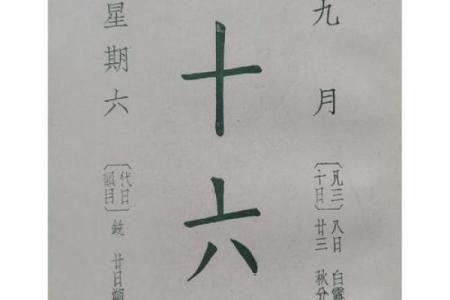 九月
〔凡三十日〕
八日 白露
廿三 秋分
十六
星期六
〔代日韻目〕 銑
廿日